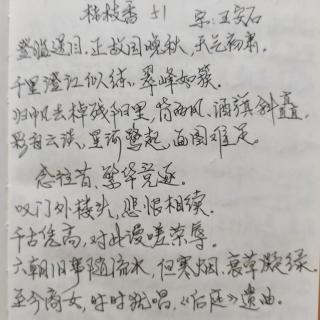 桂枝香 51 宋:王安石
登临送目,正故国晚秋,天气初肃。
千里澄江似练,翠峰如簇。
归帆去棹残阳里,背西风、酒旗斜矗。
彩舟云淡,星河鹭起,画图难足。
念往昔、繁华竞逐。
叹门外楼头,悲恨相续。
千古凭高,对此漫嗟荣辱。
六朝旧事随流水,但寒烟、衰草凝绿。
至今商女,时时犹唱,《后庭》遗曲。